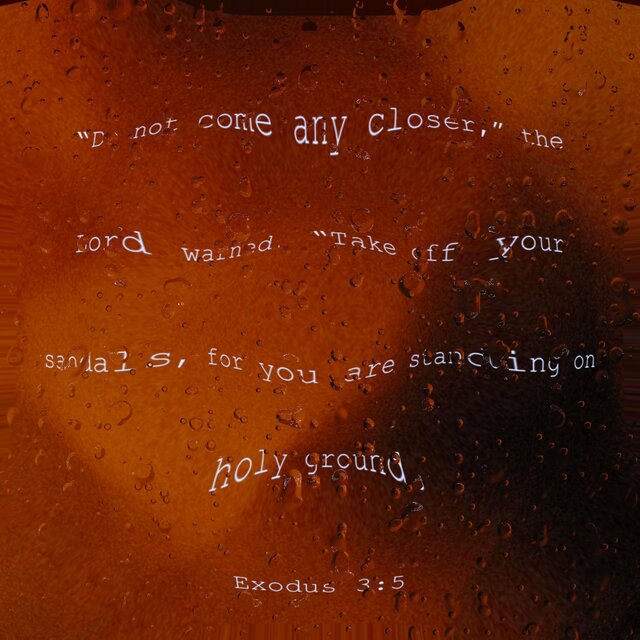 "Do not come any closer," the
Lord warned. "Take off your
sandals, for you are standing on
holy ground.
Exodus 3:5